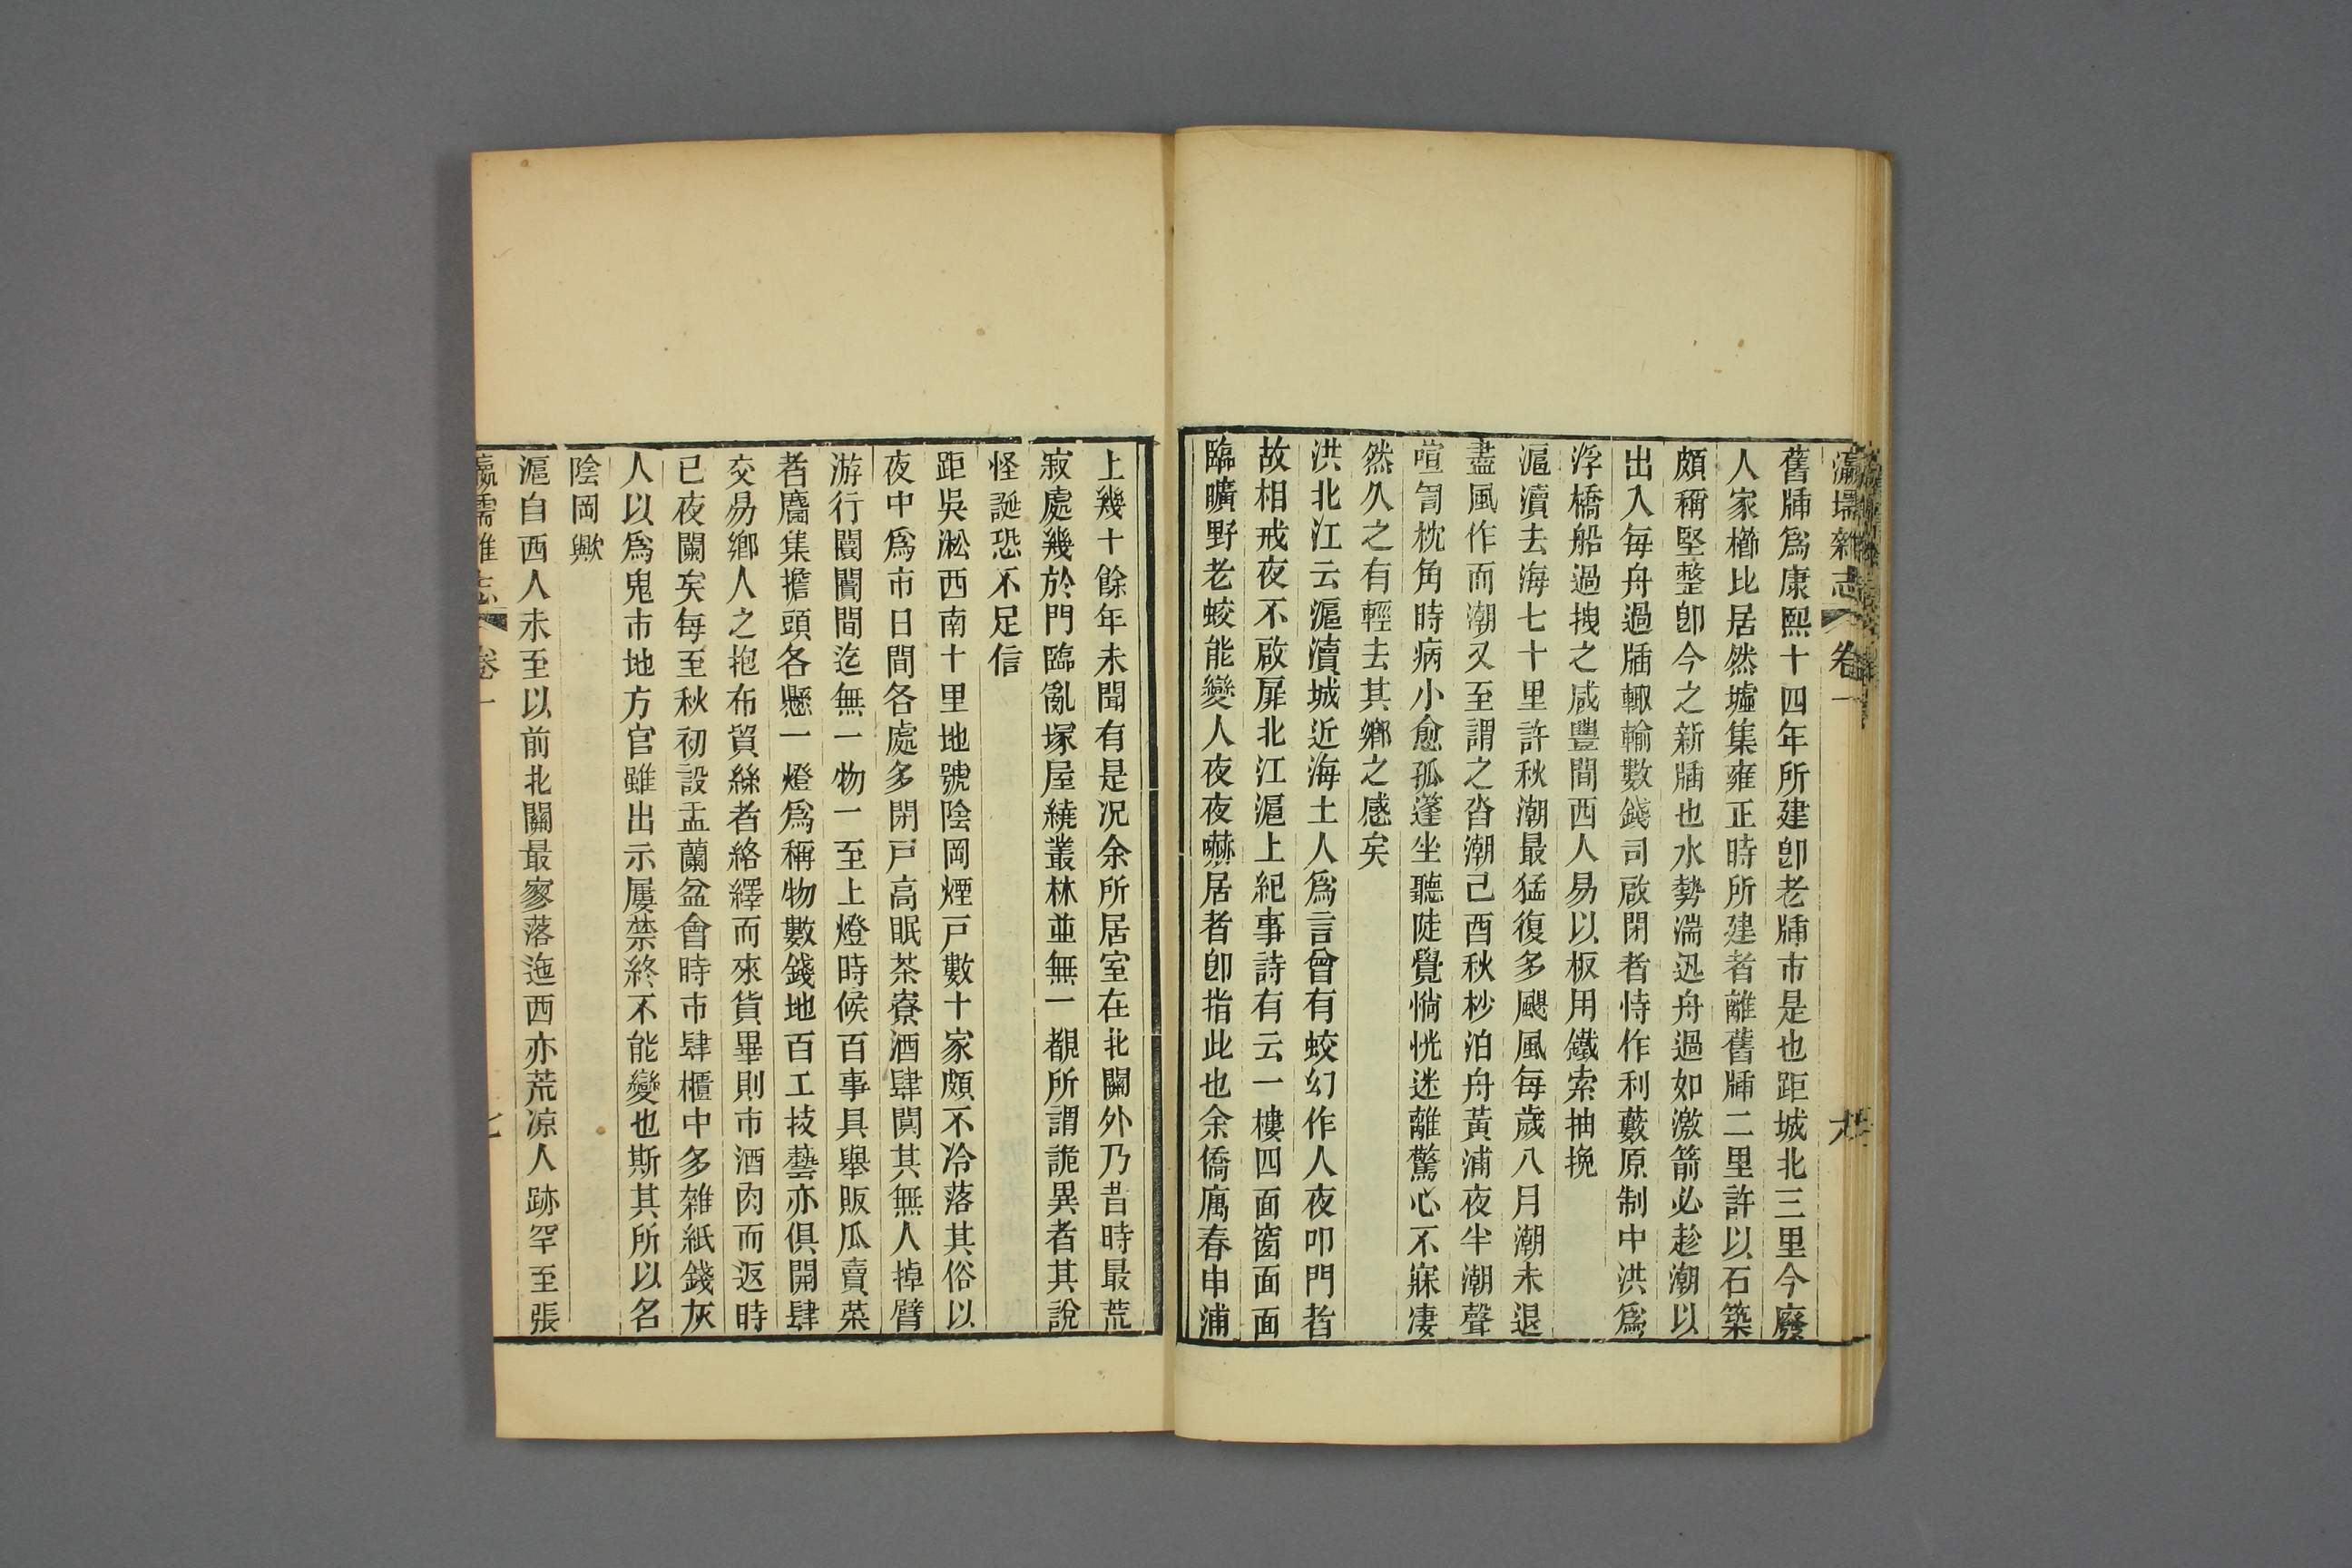 瀛壖雜志 卷一 六
舊牐爲康熙十四年所建卽老牐市是也距城北三里今廢
人家櫛比居然墟集雍正時所建者離舊牐二里許以石築
頗稱堅整卽今之新牐也水勢湍迅舟過如激箭必趁潮以
出入每舟過牐輙輸數錢司啟閉者恃作利藪原制中洪爲
浮橋船過拽之咸豐間西人易以板用鐵索抽挽
滬瀆去海七十里許秋潮最猛復多颶風每歲八月潮未退
盡風作而潮又至謂之沓潮己酉秋杪泊舟黃浦夜半潮聲
喧訇枕角時病小愈孤蓬坐聽陡覺惝恍迷離驚心不寐凄
然久之有輕去其鄉之感矣
洪北江云滬瀆城近海土人爲言曾有蛟幻作人夜叩門者
故相戒夜不啟扉北江滬上紀事詩有云一樓四面窗面面
臨曠野老蛟能變人夜夜嚇居者卽指此也余僑寓春申浦
上幾十餘年未聞有是况余所居室在北關外乃昔時最荒
寂處幾於門臨亂塚屋繞叢林並無一覩所謂詭異者其說
怪誕恐不足信
距吳淞西南十里地號陰岡煙戸數十家頗不冷落其俗以
夜中爲市日間各處多閉戸高眠茶寮酒肆闃其無人掉臂
游行闤闠間迄無一物一至上燈時候百事具舉販瓜賣菜
者麕集擔頭各懸一燈爲稱物數錢地百工技藝亦俱開肆
交易鄉人之抱布貿絲者絡繹而來貨畢則市酒肉而返時
已夜闌矣每至秋初設盂蘭盆會時市肆櫃中多雜紙錢灰
人以爲鬼市地方官雖出示屢禁終不能變也斯其所以名
陰岡歟
滬自西人未至以前北關最寥落迤西亦荒凉人跡罕至張
瀛壖雜志 卷一 七